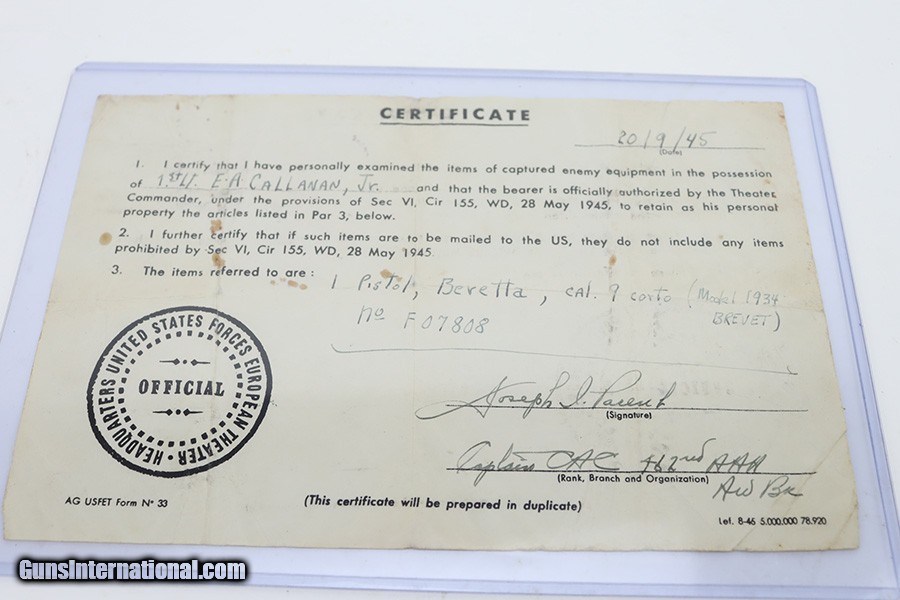 CERTIFICATE
20/9/45
(Date)
1. I certify that I have personally examined the items of captured enemy equipment in the possession
of 1st Lt. E.A. CALLANAN, Jr. and that the bearer is officially authorized by the Theater
Commander, under the provisions of Sec VI, Cir 155, WD, 28 May 1945, to retain as his personal
property the articles listed in Par 3, below.
2. I further certify that if such items are to be mailed to the US, they do not include any items
prohibited by Sec VI, Cir 155, WD, 28 May 1945.
3. The items referred to are :
1 Pistol, Beretta, cal. 9 corto (Model 1934
BREVET)
No F07808
HEADQUARTERS UNITED STATES FORCES EUROPEAN THEATER •
OFFICIAL
Joseph I. Parent
(Signature)
Captain CAC 462nd AAA
(Rank, Branch and Organization)
AW Bn
AG USFET Form No 33
(This certificate will be prepared in duplicate)
Let. 8-45 5.000.000 78.920
GunsInternational.com